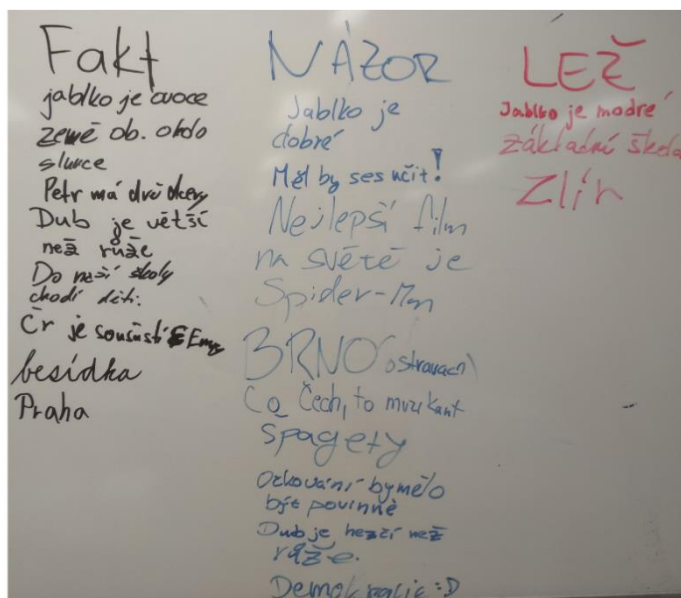 Fakt
jablko je ovoce
země ob. okolo
slunce
Petr má dvě dcery
Dub je větší
než růže
Do naší školy
chodí děti.
Čr je součástí
besídka
Praha
NÁZOR
Jablko je
dobré
Měl by ses učit!
Nejlepší film
na světě je
Spider-Man
BRNO
Co Čech, to muzikant
Špagety
Očkování by mělo
být povinné
Dub je hezčí než
růže.
Demokracie :D
LEŽ
Jablko je modré
základní škola
Zlín